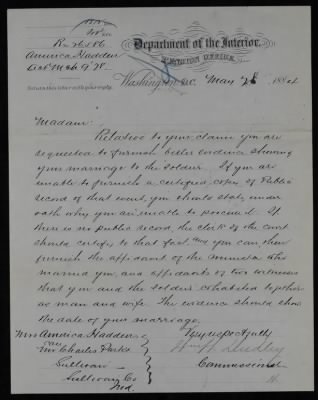 Department of the Interior,
PENSION OFFICE,
Washington, D.C. May 28 1884
America Hadden
Madam:
Relative to your claim you are
requested to furnish better evidence showing
your marriage to the soldier. If you are
unable to furnish a certified copy of Public
record of that event, you should state under
oath why you are unable to procure it. If
there is no public record, the clerk of the court
should certify to that fact and you can then
furnish the affidavit of the minister who
married you, and affidavits of two witnesses
that you and the soldier cohabited together
as man and wife. The evidence should show
the date of your marriage.
Mrs America Hadden
Care Mr Charles Parks
Sullivan
Sullivan Co
Ind.
Very respectfully
Wm W Dudley
Commissioner